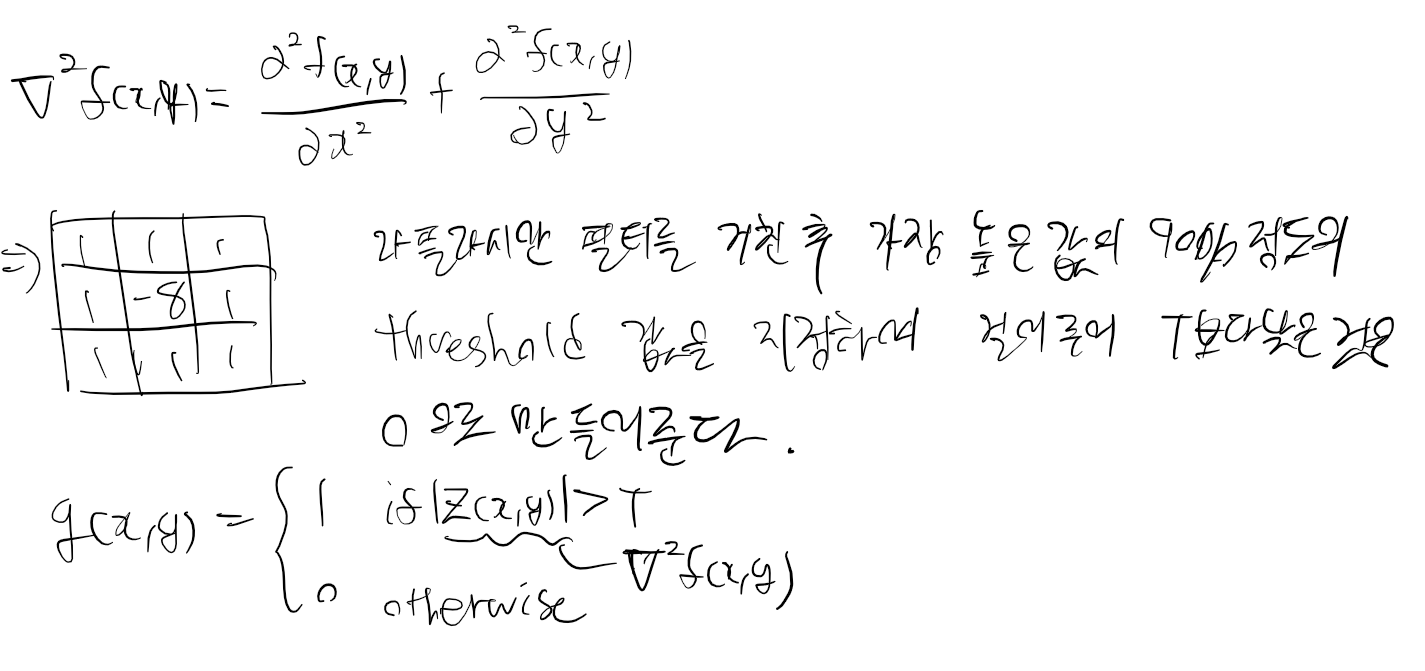 ∇²f(x,y) = ∂²f(x,y)/∂x² + ∂²f(x,y)/∂y²
⇒ 1 1 1
1 -8 1
1 1 1
라플라시안 필터를 거친 후 가장 높은 값의 90% 정도의
threshold 값을 지정하여 걸러주어 T보다 낮은 것은
0으로 만들어준다.
g(x,y) = { 1 if |Z(x,y)| > T
∇²f(x,y)
0 otherwise